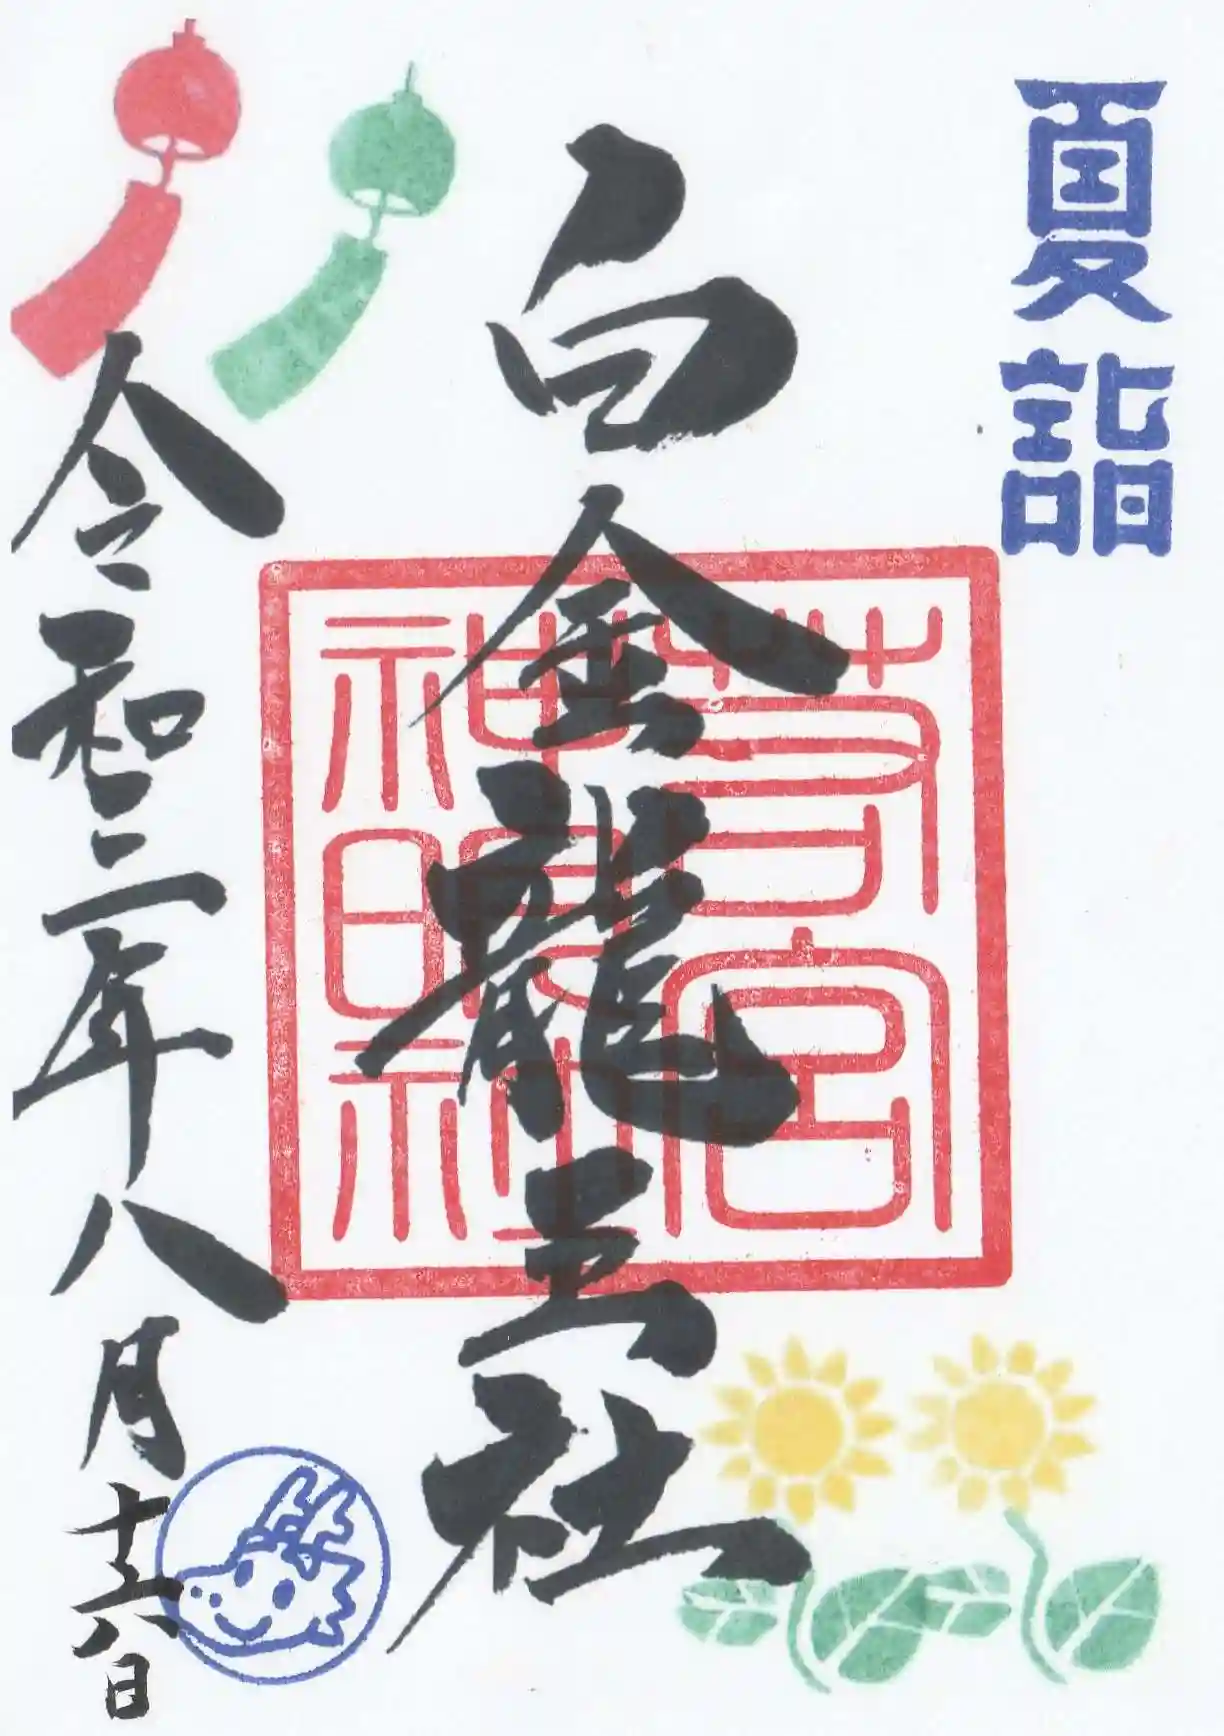 夏詣
若宮神明社
白金龍王社
令和三年八月十六日